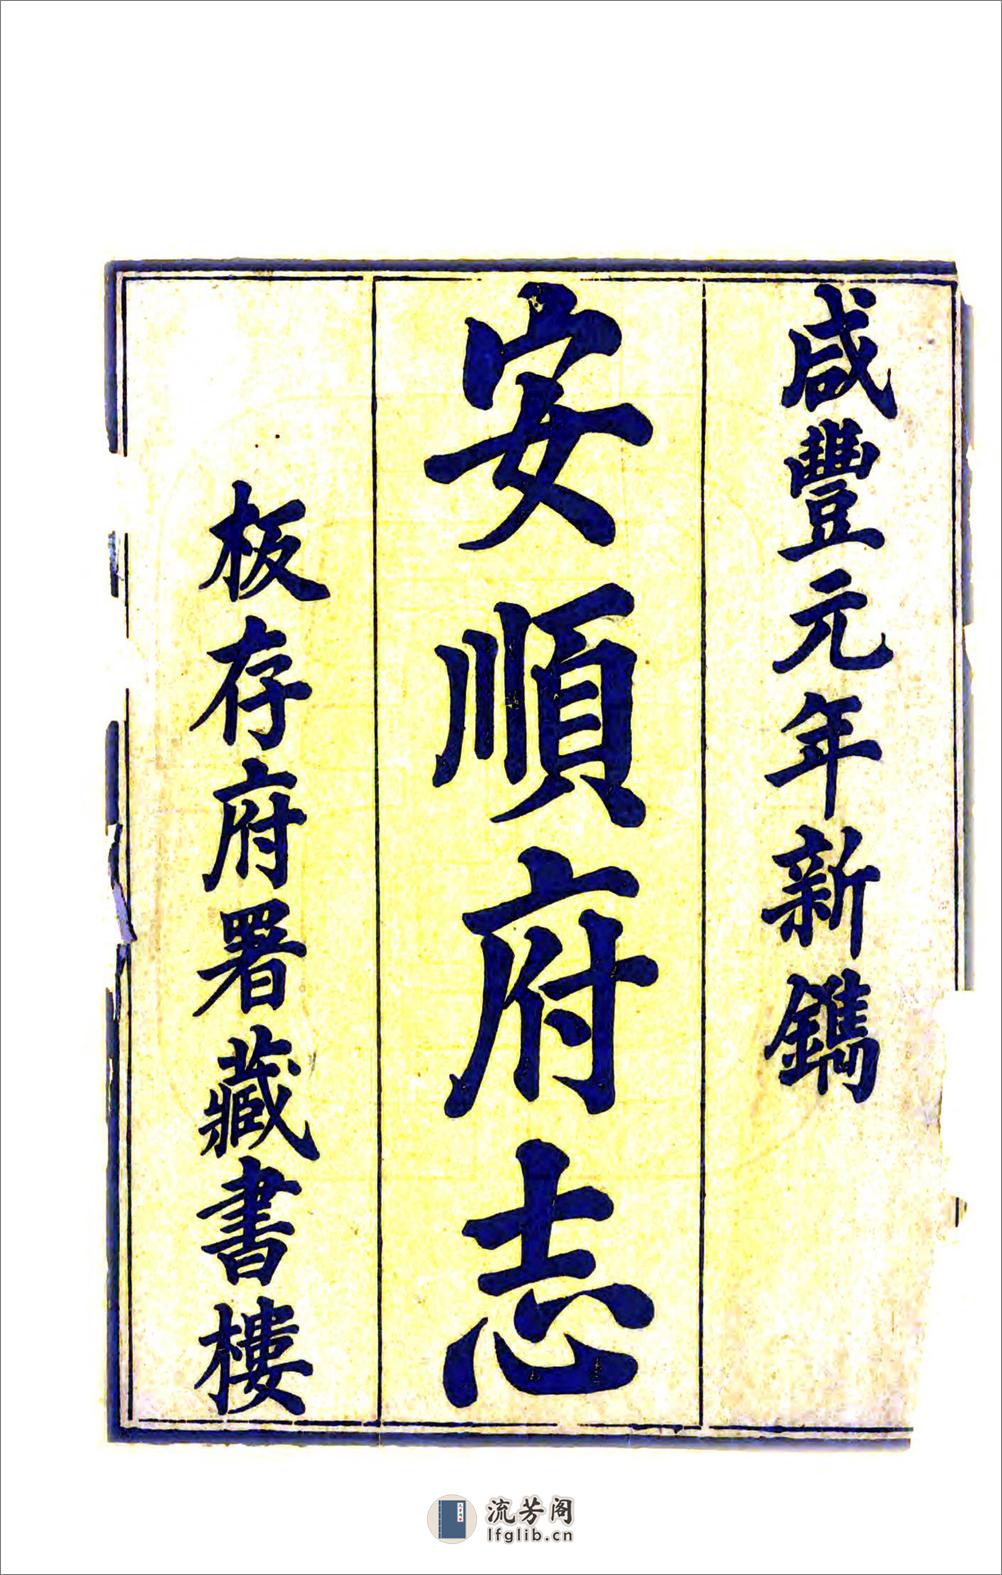 咸豐元年新鐫
安順府志
板存府署藏書樓
流芳阁
lfglib.cn